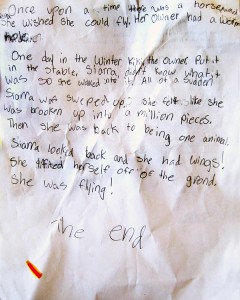 Once upon a time there was a horse
She wished she could fly. Her owner had a
One day in the winter Kiki the owner Put it
in the stable, Siarra, didn't know what it
was so she walked into it. All of a sudden
Siarra was sweped up, She felt like she
was brooken up into a million pieces.
Then she was back to being one animal.
Siarra looked back and she had wings!
She lifted herself off of the grond.
She was flying!
The end